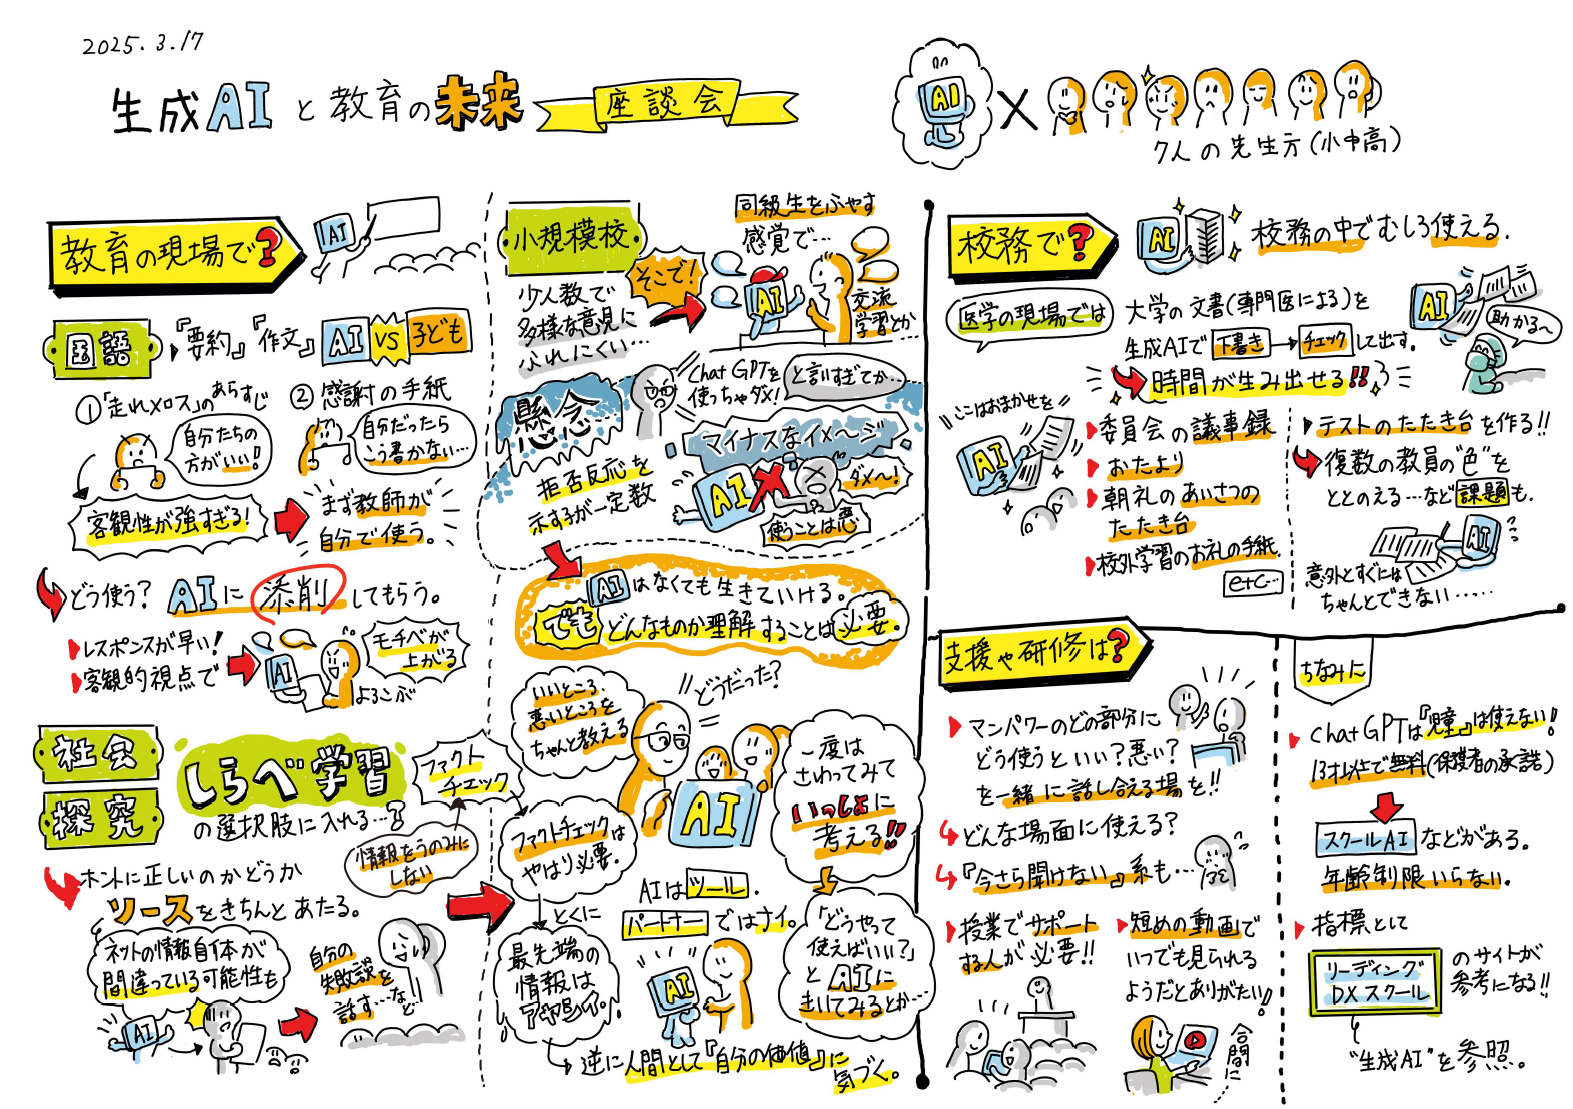 2025.3.17
生成AIと教育の未来 座談会
AI
7人の先生方(小中高)
教育の現場で?
AI
国語
『要約』『作文』 AI VS 子ども
①「走れメロス」のあらすじ
自分たちの
方がいい!
客観性が強すぎる!
②感謝の手紙
自分だったら
こう書かない…
まず教師が
自分で使う。
どう使う? AIに添削してもらう。
レスポンスが早い!
客観的視点で
AI
よろこぶ
モチベが
上がる
社会
探究
しらべ学習
の選択肢に入れる…?
ファクト
チェック
情報をうのみに
しない
ホントに正しいのかどうか
ソースをきちんとあたる。
ネットの情報自体が
間違っている可能性も
AI
自分の
失敗談を
話す…など
小規模校
少人数で
多様な意見に
ふれにくい…
そこで!
同級生をふやす
感覚で…
AI
交流
学習とか
懸念
Chat GPTを
使っちゃダメ!
と言いすぎてか…
マイナスなイメ〜ジ
拒否反応を
示す子が一定数
AI
ダメ〜!
使うことは悪
AIはなくても生きていける。
でも どんなものか理解することは必要。
いいところ
悪いところを
ちゃんと教える
どうだった?
AI
一度は
さわってみて
いっしょに
考える!!
ファクトチェックは
やはり必要。
とくに
最先端の
情報は
アヤシイ。
AIはツール.
パートナーではナイ。
AI
「どうやって
使えばいい?」
とAIに
きいてみるとか…
逆に人間として『自分の価値』に
気づく。
校務で?
AI
校務の中でむしろ使える.
医学の現場では
大学の文書(専門医による)を
生成AIで下書き→チェックして出す。
時間が生み出せる!!
AI
助かる〜
ここはおまかせを
AI
委員会の議事録
おたより
朝礼のあいさつの
たたき台
校外学習のお礼の手紙.
etc…
テストのたたき台を作る!!
複数の教員の"色"を
ととのえる…など課題も.
AI
意外とすぐには
ちゃんとできない……
支援や研修は?
マンパワーのどの部分に
どう使うといい?悪い?
を一緒に話し合える場を!!
どんな場面に使える?
『今さら聞けない』系も…
授業でサポート
する人が必要!!
短めの動画で
いつでも見られる
ようだとありがたい!!
合間に
ちなみに
ChatGPTは『児童』は使えない!
13才以上で無料(保護者の承諾)
スクールAIなどがある。
年齢制限いらない.
指標として
リーディング
DXスクール
のサイトが
参考になる!!
"生成AI"を参照。